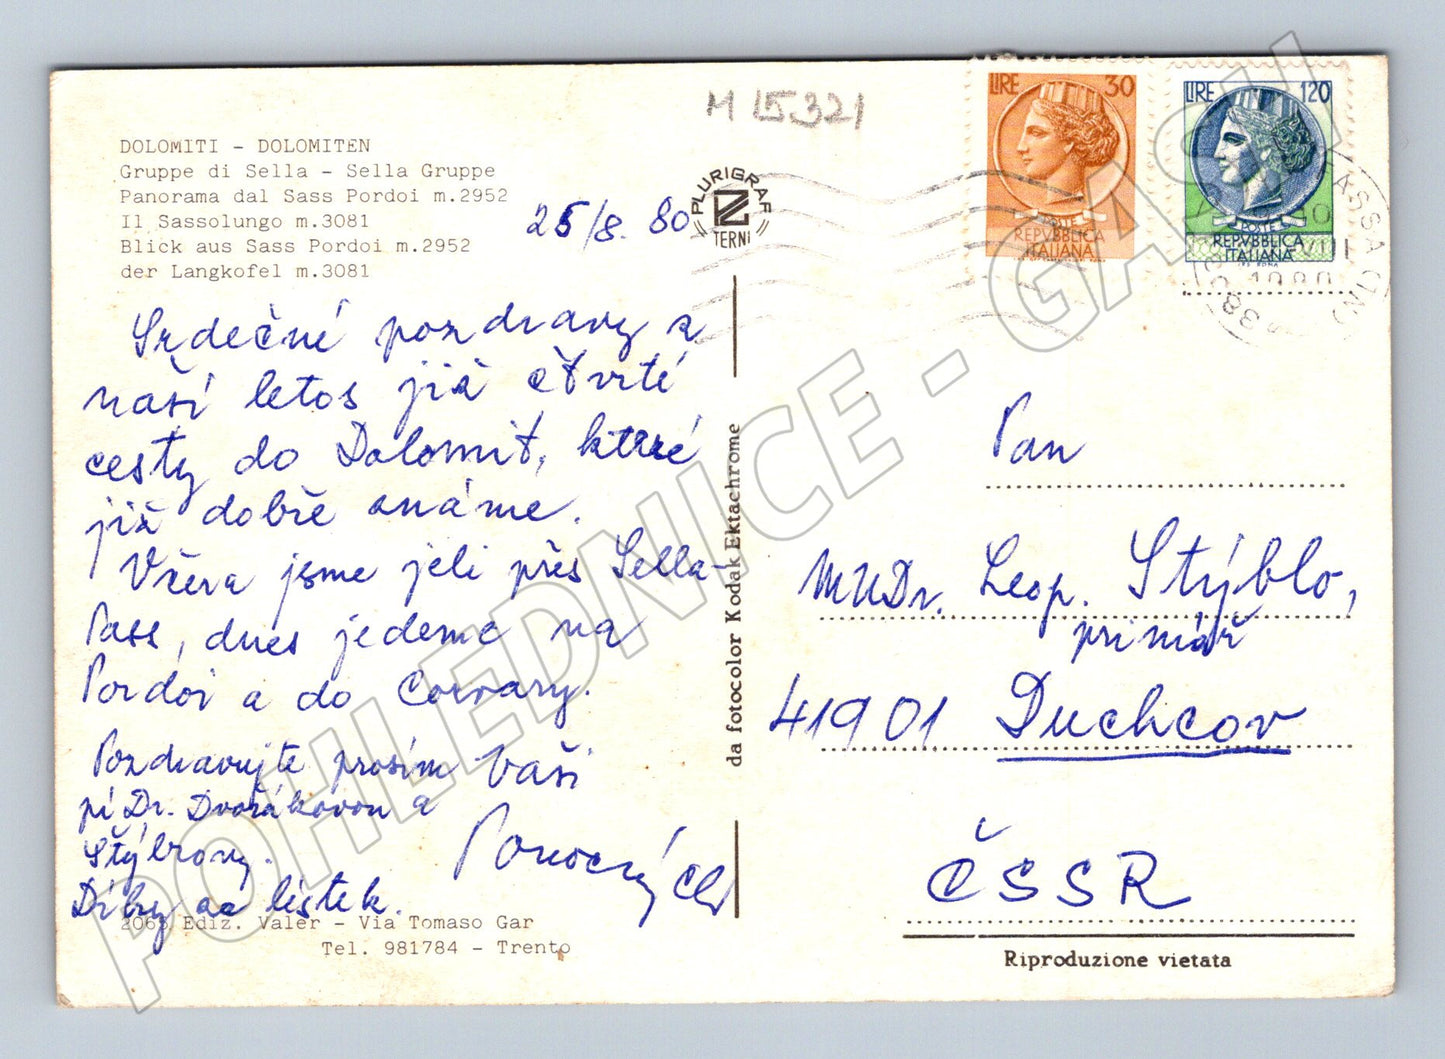 M 15321
DOLOMITI - DOLOMITEN
Gruppe di Sella - Sella Gruppe
Panorama dal Sass Pordoi m.2952
Il Sassolungo m.3081
Blick aus Sass Pordoi m.2952
der Langkofel m.3081
25/8. 80
Srdečné pozdravy z
naší letos již čtvrté
cesty do Dolomit, které
již dobře známe.
Včera jsme jeli přes Sella-
Pass, dnes jedeme na
Pordoi a do Corvary.
Pozdravujte prosím Vaši
pí Dr. Dvořákovou a
Štýbrovy.
Díky za lístek.
2065 Ediz. Valer - Via Tomaso Gar
Tel. 981784 - Trento
PLURIGRAF
TERNI
da fotocolor Kodak Ektachrome
LIRE 30
REPVBBLICA
ITALIANA
LIRE 120
POSTE
REPVBBLICA
ITALIANA
VIII
1980
Pan
MUDr. Leop. Stýblo,
primář
41901 Duchcov
ČSSR
Riproduzione vietata
POHLEDNICE - GASH